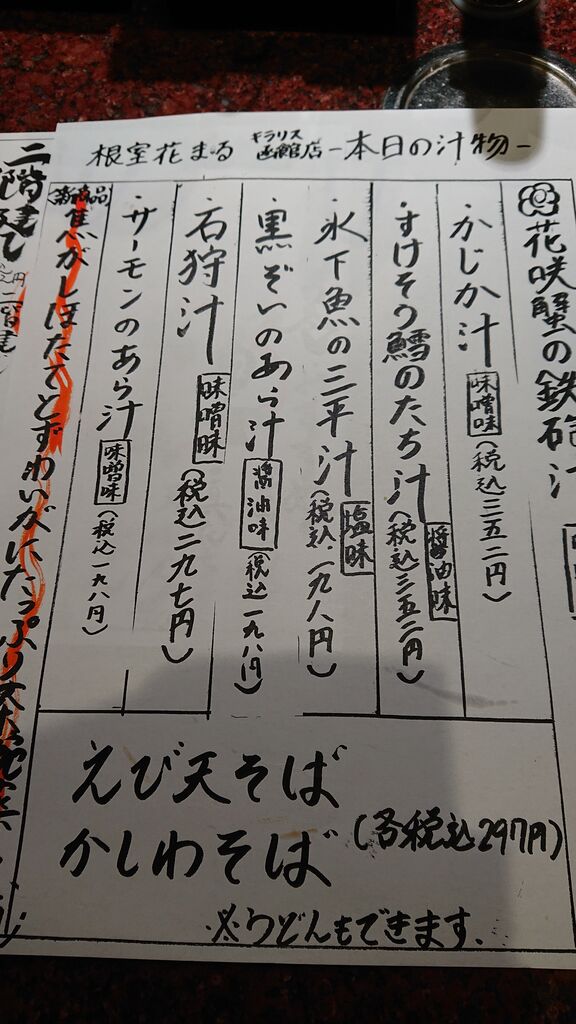 根室花まる キラリス函館店 -本日の汁物-
花咲蟹の鉄砲汁
・かじか汁 味噌味 (税込三五二円)
・すけそう鱈のたち汁 醤油味 (税込三五二円)
・氷下魚の三平汁 塩味 (税込一九八円)
・黒ぞいのあら汁 醤油味 (税込一九八円)
・石狩汁 味噌味 (税込二九七円)
・サーモンのあら汁 味噌味 (税込一九八円)
新商品 焦がしほたてとずわいがにたっぷり
二階建
えび天そば
かしわそば
(各税込297円)
※うどんもできます.